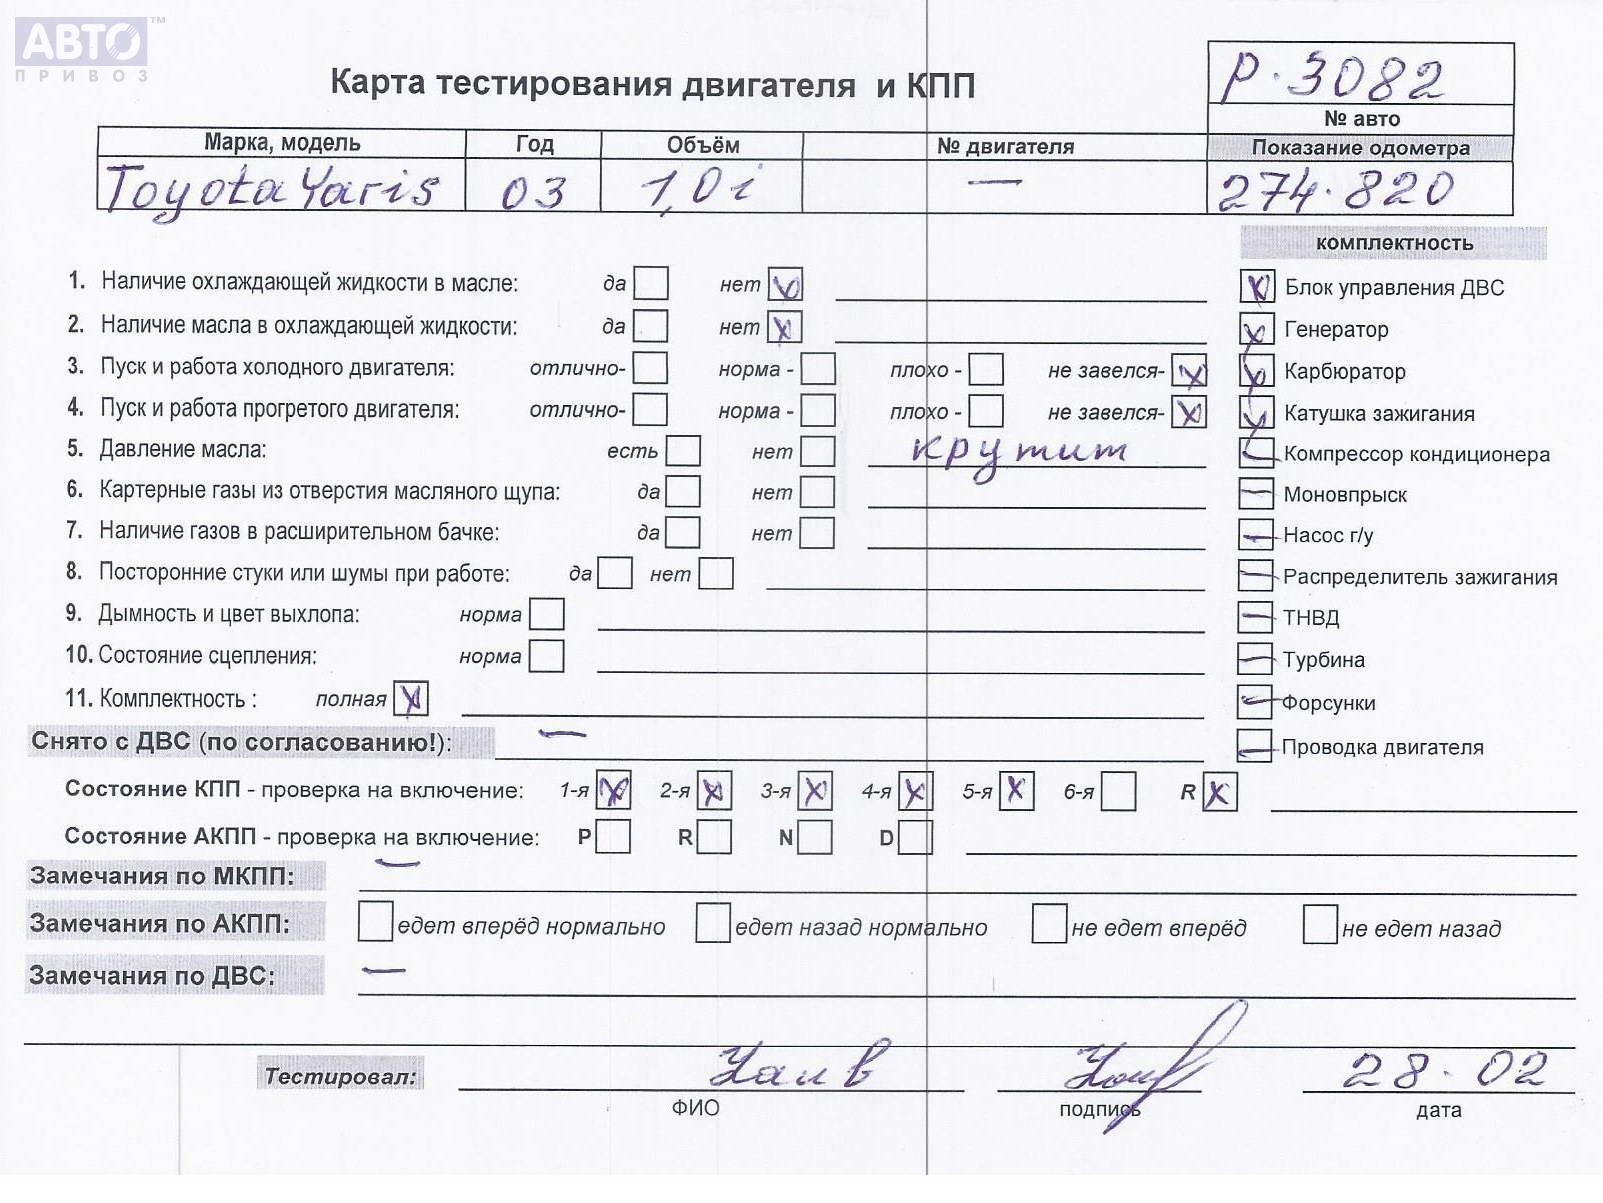 АВТО™
ПРИВОЗ
Карта тестирования двигателя и КПП
P.3082
№ авто
Марка, модель Год Объём № двигателя Показание одометра
Toyota Yaris 03 1,0i — 274.820
комплектность
1. Наличие охлаждающей жидкости в масле: да нет Блок управления ДВС
2. Наличие масла в охлаждающей жидкости: да нет Генератор
3. Пуск и работа холодного двигателя: отлично- норма - плохо - не завелся- Карбюратор
4. Пуск и работа прогретого двигателя: отлично- норма - плохо - не завелся- Катушка зажигания
5. Давление масла: есть нет крутит Компрессор кондиционера
6. Картерные газы из отверстия масляного щупа: да нет Моновпрыск
7. Наличие газов в расширительном бачке: да нет Насос г/у
8. Посторонние стуки или шумы при работе: да нет Распределитель зажигания
9. Дымность и цвет выхлопа: норма ТНВД
10. Состояние сцепления: норма Турбина
11. Комплектность : полная Форсунки
Снято с ДВС (по согласованию!): — Проводка двигателя
Состояние КПП - проверка на включение: 1-я 2-я 3-я 4-я 5-я 6-я R
Состояние АКПП - проверка на включение: P R N D
Замечания по МКПП: —
Замечания по АКПП: едет вперёд нормально едет назад нормально не едет вперёд не едет назад
Замечания по ДВС: —
Тестировал: 28.02
ФИО подпись дата